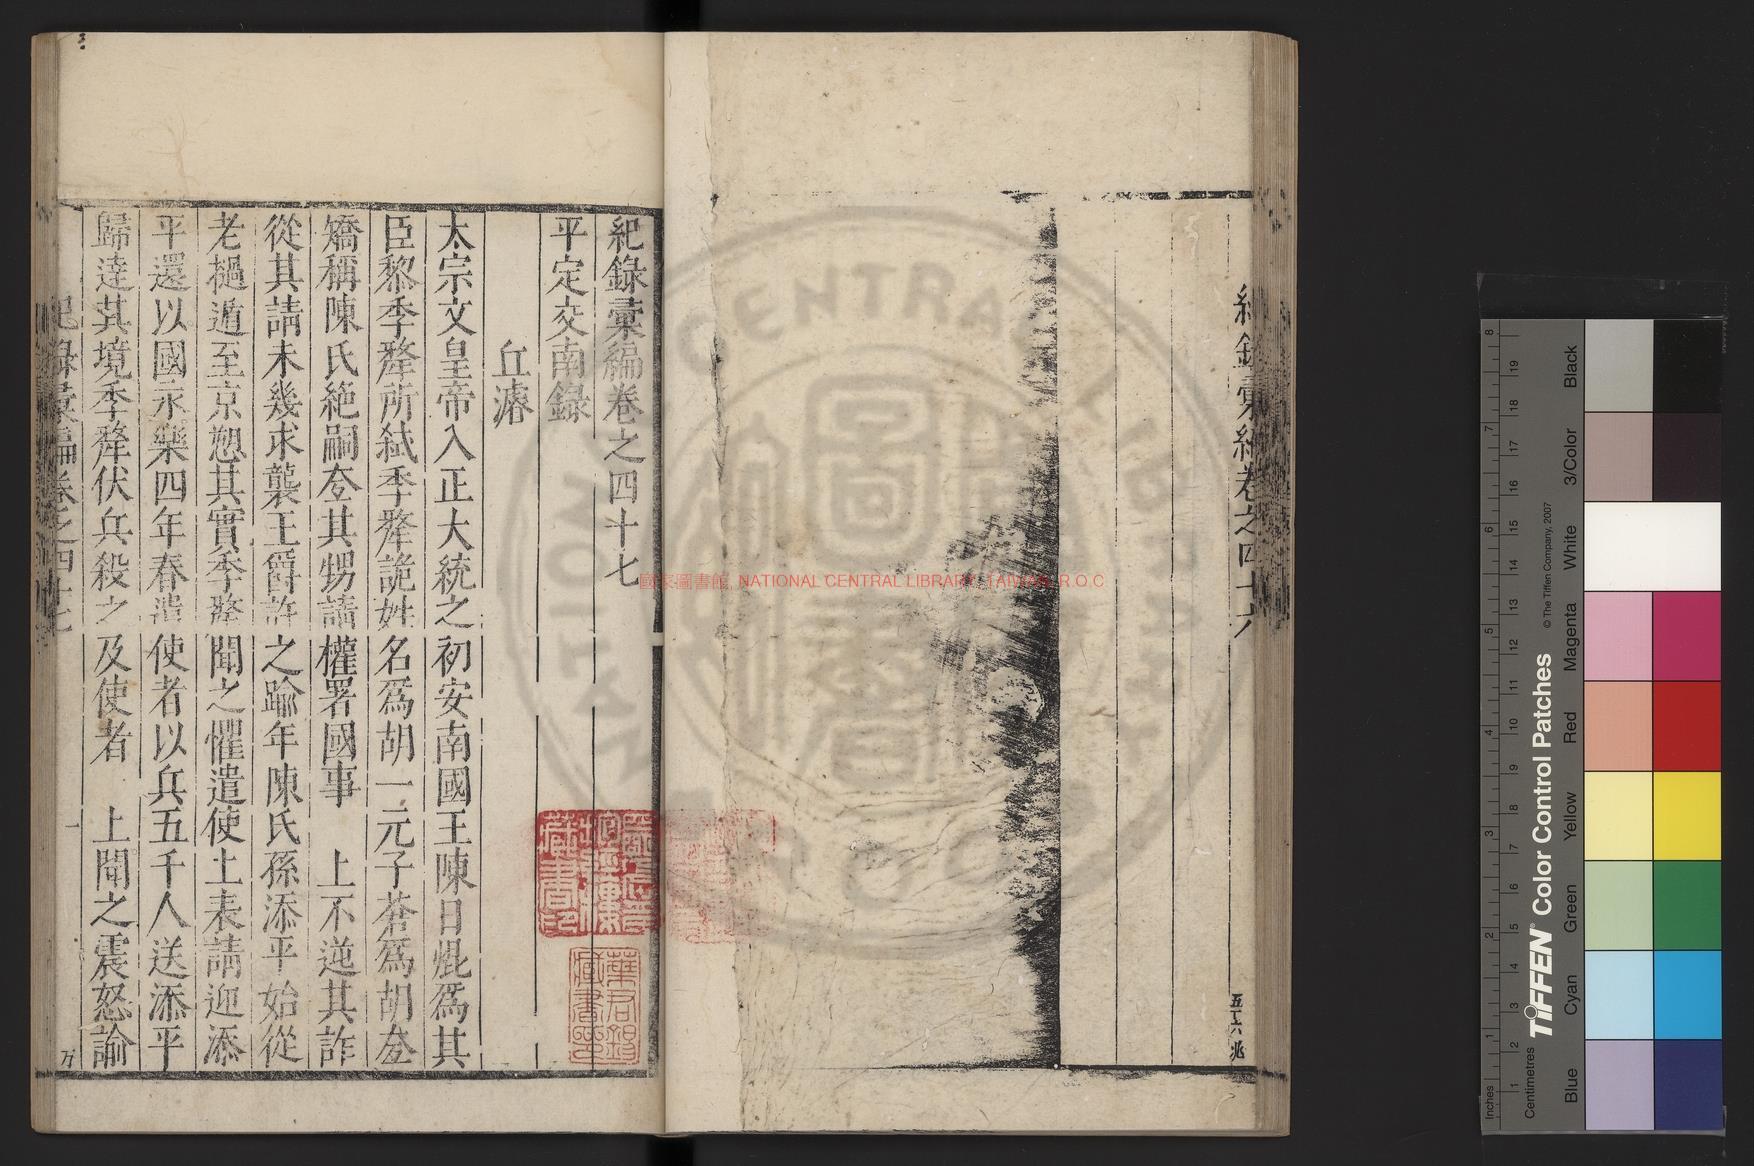 紀錄彙編卷之四十六
五十六 兆
紀錄彙編卷之四十七
平定交南錄
丘濬
太宗文皇帝入正大統之初安南國王陳日焜爲其
臣黎季犛所弑季犛詭姓名爲胡一元子蒼爲胡𡗨
矯稱陳氏絕嗣𡗨其甥請權署國事 上不逆其詐
從其請未幾求襲王爵許之踰年陳氏孫添平始從
老撾遁至京愬其實季犛聞之懼遣使上表請迎添
平還以國永樂四年春遣使者以兵五千人送添平
歸達其境季犛伏兵殺之及使者 上聞之震怒諭
紀錄彙編卷之四十七
一
万
藏書印
華君錫
藏書印
國家圖書館 NATIONAL CENTRAL LIBRARY, TAIWAN, R.O.C
Inches
Centimetres
TIFFEN® Color Control Patches
© The Tiffen Company, 2007
Blue
Cyan
Green
Yellow
Red
Magenta
White
3/Color
Black